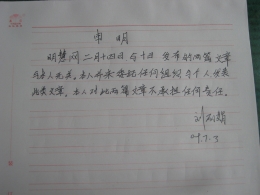 申明
明慧网二月十四日与十日发布的两篇文章
与本人无关。本人从未委托任何组织与个人发表
此类文章。本人对此两篇文章不承担任何责任。
09.7.3